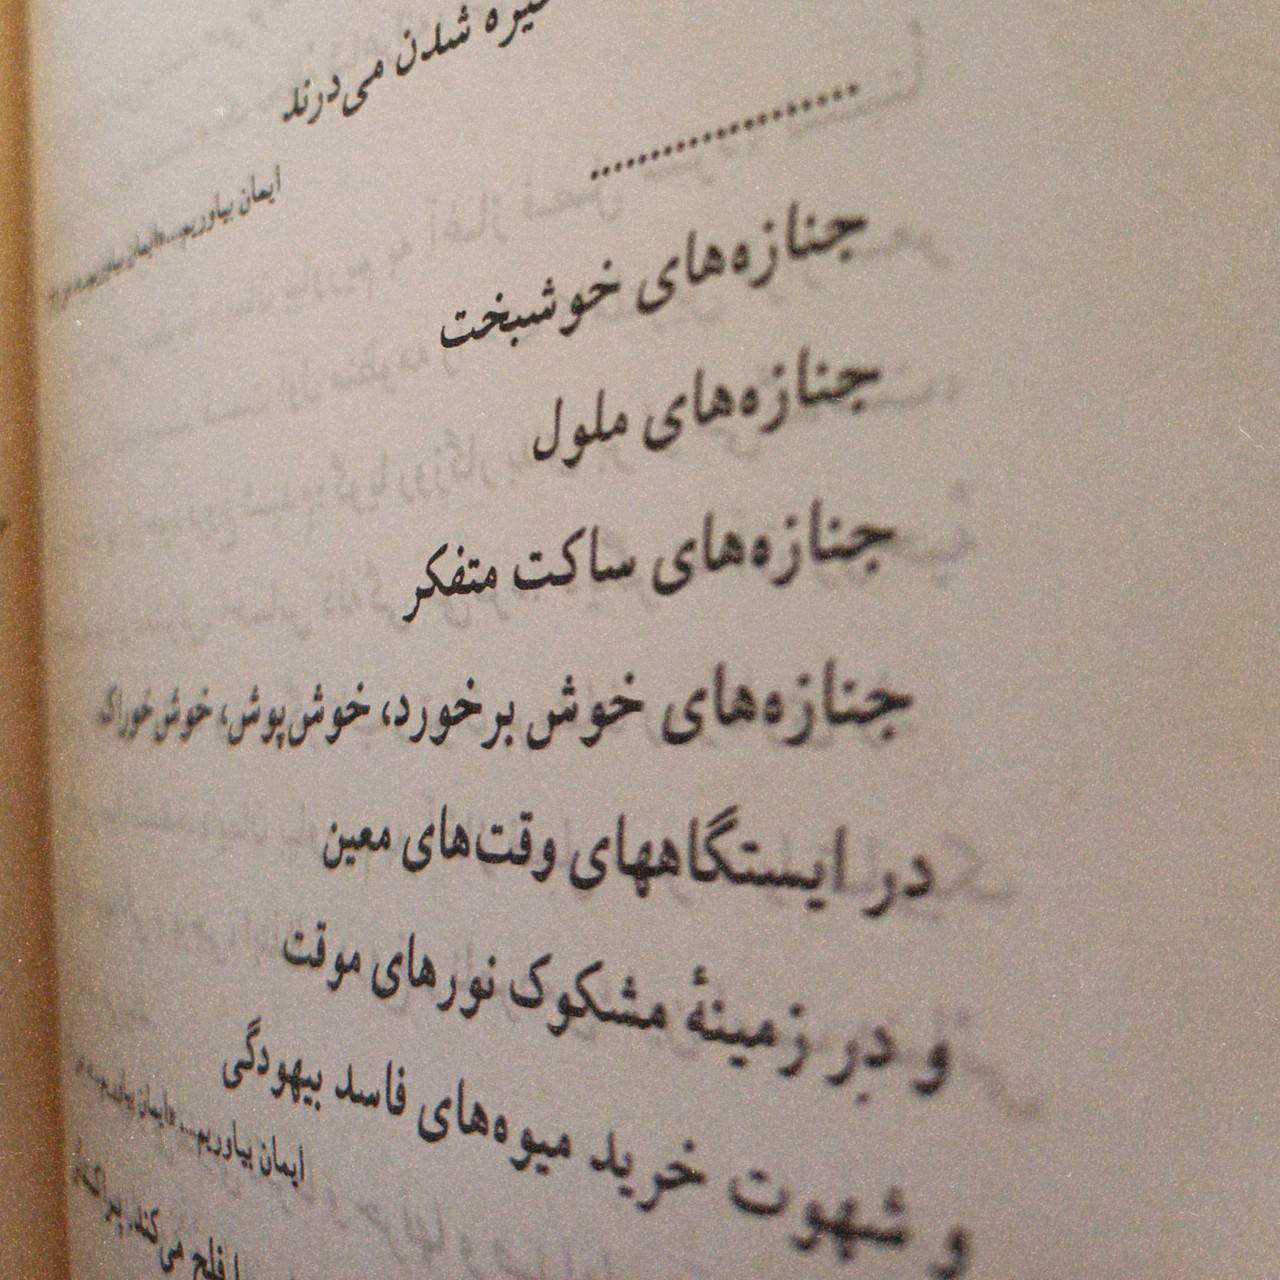 خیره شدن می‌درند
ایمان بیاوریم...، «ایمان بیاوریم»، ص
....................
جنازه‌های خوشبخت
جنازه‌های ملول
جنازه‌های ساکت متفکر
جنازه‌های خوش برخورد، خوش‌پوش، خوش خوراک
در ایستگاههای وقت‌های معین
و در زمینهٔ مشکوک نورهای موقت
و شهوت خرید میوه‌های فاسد بیهودگی
ایمان بیاوریم...، «ایمان بیاوریم»
فلج می‌کند.